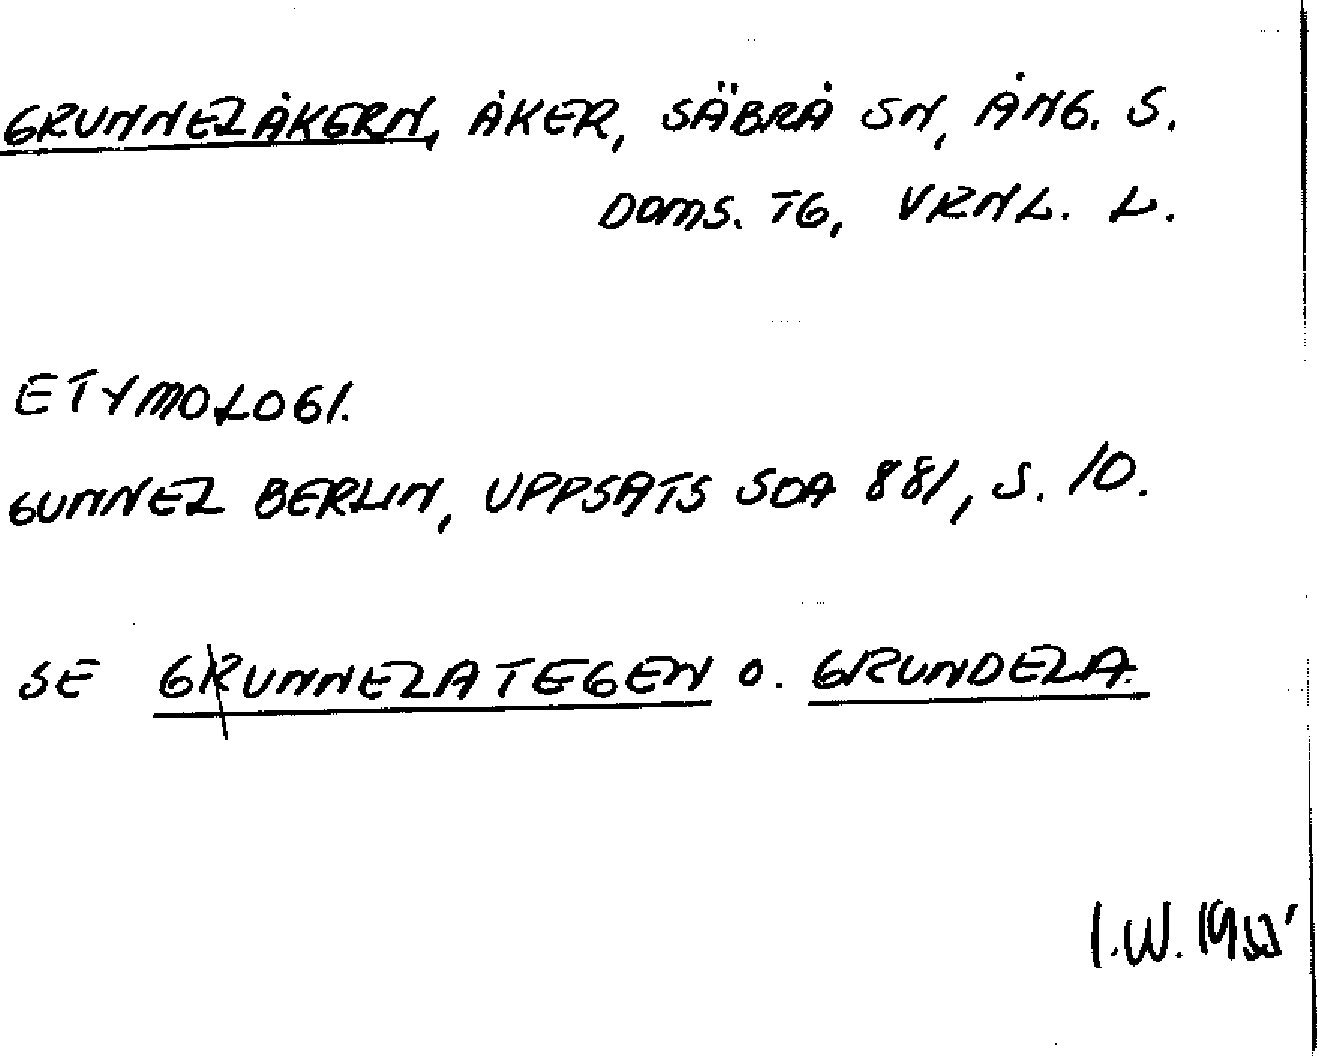 GRUNNELÅKERN, ÅKER, SÄBRÅ SN, ÅNG. S.
DOMS. TG, VRNL. L.
ETYMOLOGI.
GUNNEL BERLIN, UPPSATS SOA 881, S. 10.
SE GRUNNELATEGEN O. GRUNDELA.
I.W. 1955